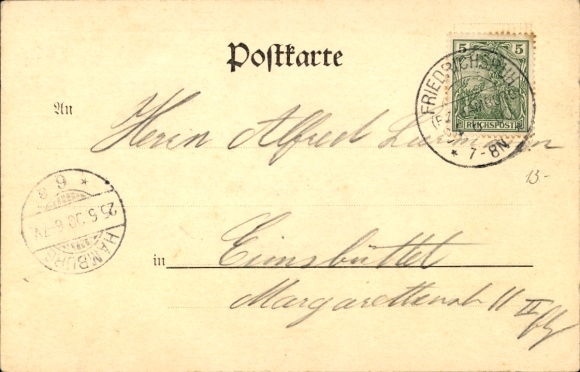 Postkarte
5 5
REICHSPOST
FRIEDRICHSRUH
* 7-8N
An
Herrn Alfred
13-
* 6 a
25.5.00.6-7N
HAMBURG
in Eimsbüttel
Margarethenstr 11